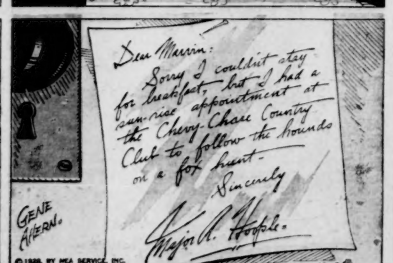 Dear Marvin:
Sorry I couldn't stay
for breakfast, but I had a
sun-rise appointment at
the Chevy-Chase Country
Club to follow the hounds
on a fox hunt.-
Sincerely
Major A. Hoople.
GENE
AHERN.
BY NEA SERVICE, INC.